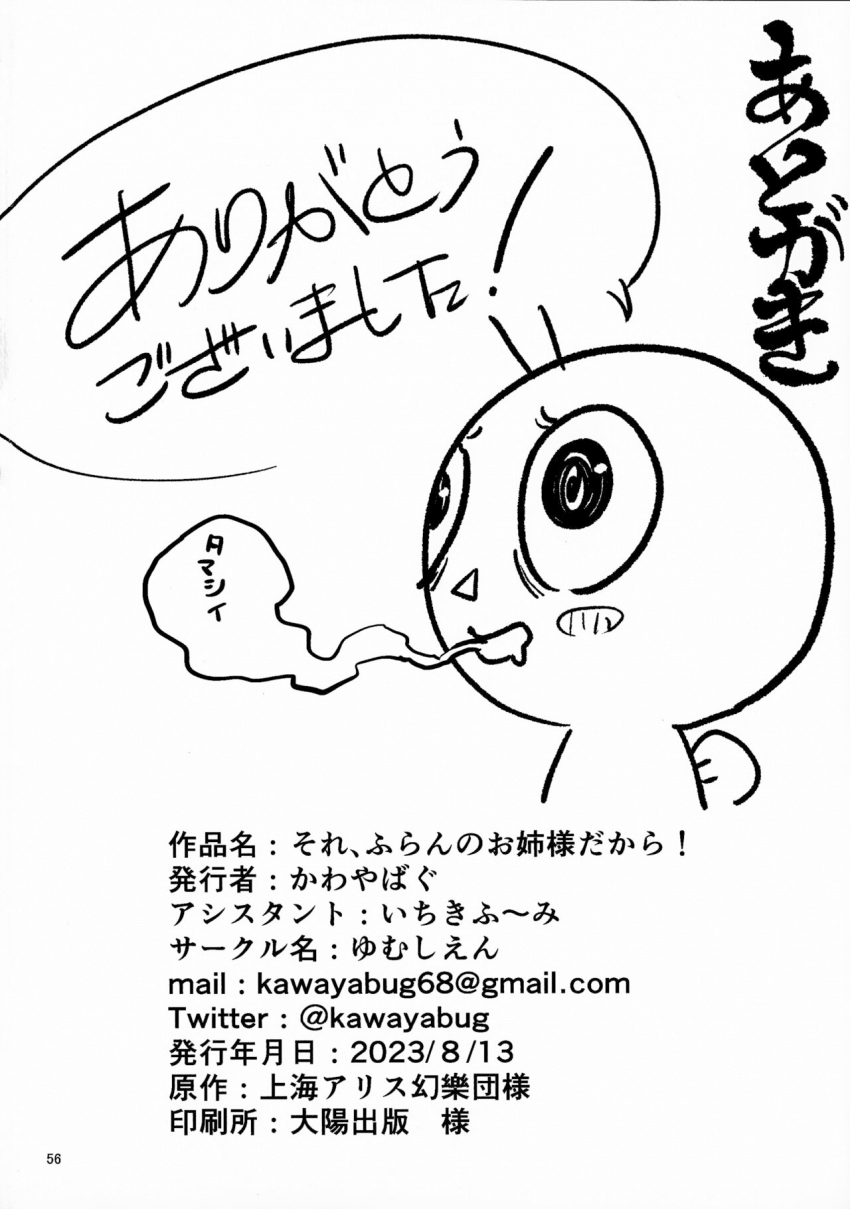 あとがき
ありがとう
ございました!
タマシイ
作品名：それ、ふらんのお姉様だから！
発行者：かわやばぐ
アシスタント：いちきふ～み
サークル名：ゆむしえん
mail：kawayabug68@gmail.com
Twitter：@kawayabug
発行年月日：2023/8/13
原作：上海アリス幻樂団様
印刷所：大陽出版　様
56